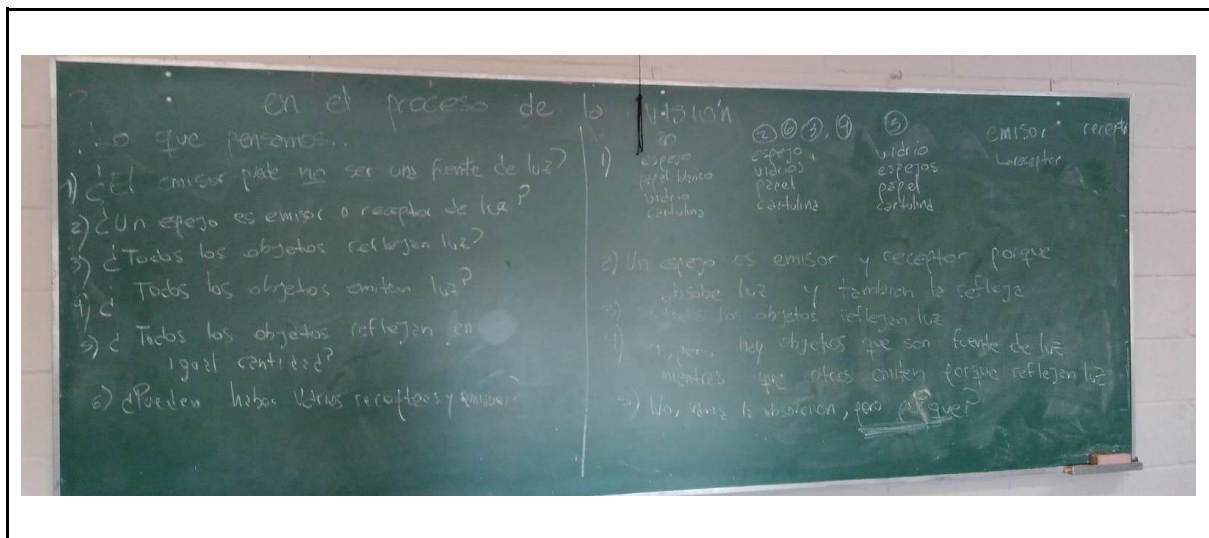 en el proceso de la visión
Lo que pensamos...
1) ¿El emisor puede no ser una fuente de luz?
2) ¿Un espejo es emisor o receptor de luz?
3) ¿Todos los objetos reflejan luz?
4) ¿Todos los objetos emiten luz?
5) ¿Todos los objetos reflejan en
igual cantidad?
6) ¿Pueden haber varios receptores y
1)
espejo
papel blanco
vidrio
cartulina
② ⑥ ③, ④
espejo
vidrios
papel
cartulina
⑤
vidrio
espejos
papel
cartulina
emisor recept
receptor
2) Un espejo es emisor y receptor porque
luz y tambien la refleja
3) los objetos reflejan luz
4) hay objetos que son fuente de luz
mientras que otros emiten porque reflejan luz
5) No, varia la absorcion, pero ¿Por que?